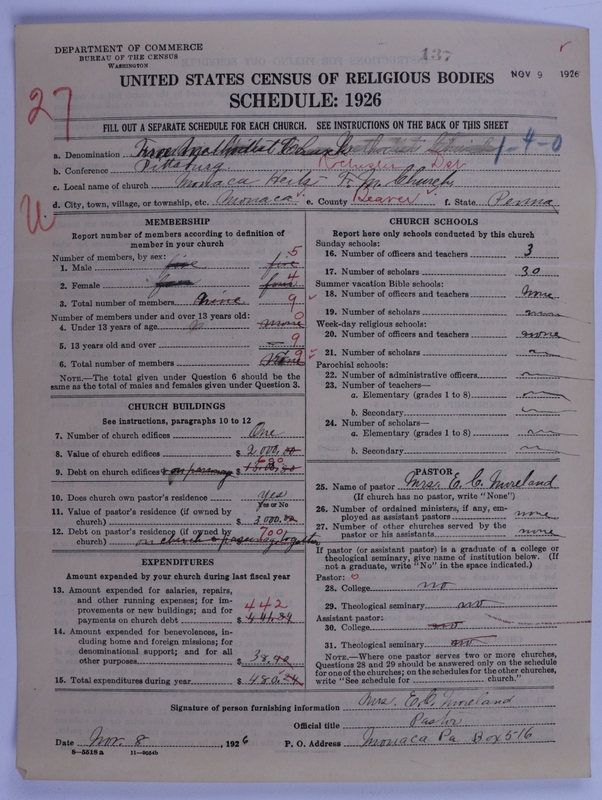 DEPARTMENT OF COMMERCE
BUREAU OF THE CENSUS
WASHINGTON
137
NOV 9 1926
UNITED STATES CENSUS OF RELIGIOUS BODIES
SCHEDULE: 1926
27
FILL OUT A SEPARATE SCHEDULE FOR EACH CHURCH. SEE INSTRUCTIONS ON THE BACK OF THIS SHEET
a. Denomination Free Methodist Church 1-4-0
b. Conference Pittsburg Rochester Dst
c. Local name of church Monaca Heits F. M. Church
d. City, town, village, or township, etc. Monaca e. County Beaver f. State Penna
MEMBERSHIP
Report number of members according to definition of member in your church
Number of members, by sex:
1. Male five five 5
2. Female four four 4
3. Total number of members nine 9
Number of members under and over 13 years old:
4. Under 13 years of age none 0
5. 13 years old and over 9
6. Total number of members 9
NOTE.—The total given under Question 6 should be the same as the total of males and females given under Question 3.
CHURCH BUILDINGS
See instructions, paragraphs 10 to 12
7. Number of church edifices One
8. Value of church edifices $ 2000.00
9. Debt on church edifices on parsonage $ 1500.00
10. Does church own pastor's residence Yes
Yes or No
11. Value of pastor's residence (if owned by church) $ 3000.00
12. Debt on pastor's residence (if owned by church) 700 on church & parsonage together
EXPENDITURES
Amount expended by your church during last fiscal year
13. Amount expended for salaries, repairs, and other running expenses; for improvements or new buildings; and for payments on church debt $ 442
14. Amount expended for benevolences, including home and foreign missions; for denominational support; and for all other purposes $ 38.
15. Total expenditures during year $ 480.
CHURCH SCHOOLS
Report here only schools conducted by this church
Sunday schools:
16. Number of officers and teachers 3
17. Number of scholars 30
Summer vacation Bible schools:
18. Number of officers and teachers None
19. Number of scholars
Week-day religious schools:
20. Number of officers and teachers none
21. Number of scholars
Parochial schools:
22. Number of administrative officers
23. Number of teachers—
a. Elementary (grades 1 to 8)
b. Secondary
24. Number of scholars—
a. Elementary (grades 1 to 8)
b. Secondary
PASTOR
25. Name of pastor Mrs. E. C. Moreland
(If church has no pastor, write "None")
26. Number of ordained ministers, if any, employed as assistant pastors none
27. Number of other churches served by the pastor or his assistants none
If pastor (or assistant pastor) is a graduate of a college or theological seminary, give name of institution below. (If not a graduate, write "No" in the space indicated.)
Pastor: 0
28. College no
29. Theological seminary no
Assistant pastor:
30. College no
31. Theological seminary no
NOTE.—Where one pastor serves two or more churches, Questions 28 and 29 should be answered only on the schedule for one of the churches; on the schedules for the other churches, write "See schedule for church."
Signature of person furnishing information Mrs. E. C. Moreland
Official title Pastor
Date Nov. 8, 1926 P. O. Address Monaca Pa Box 516
8—5518 a